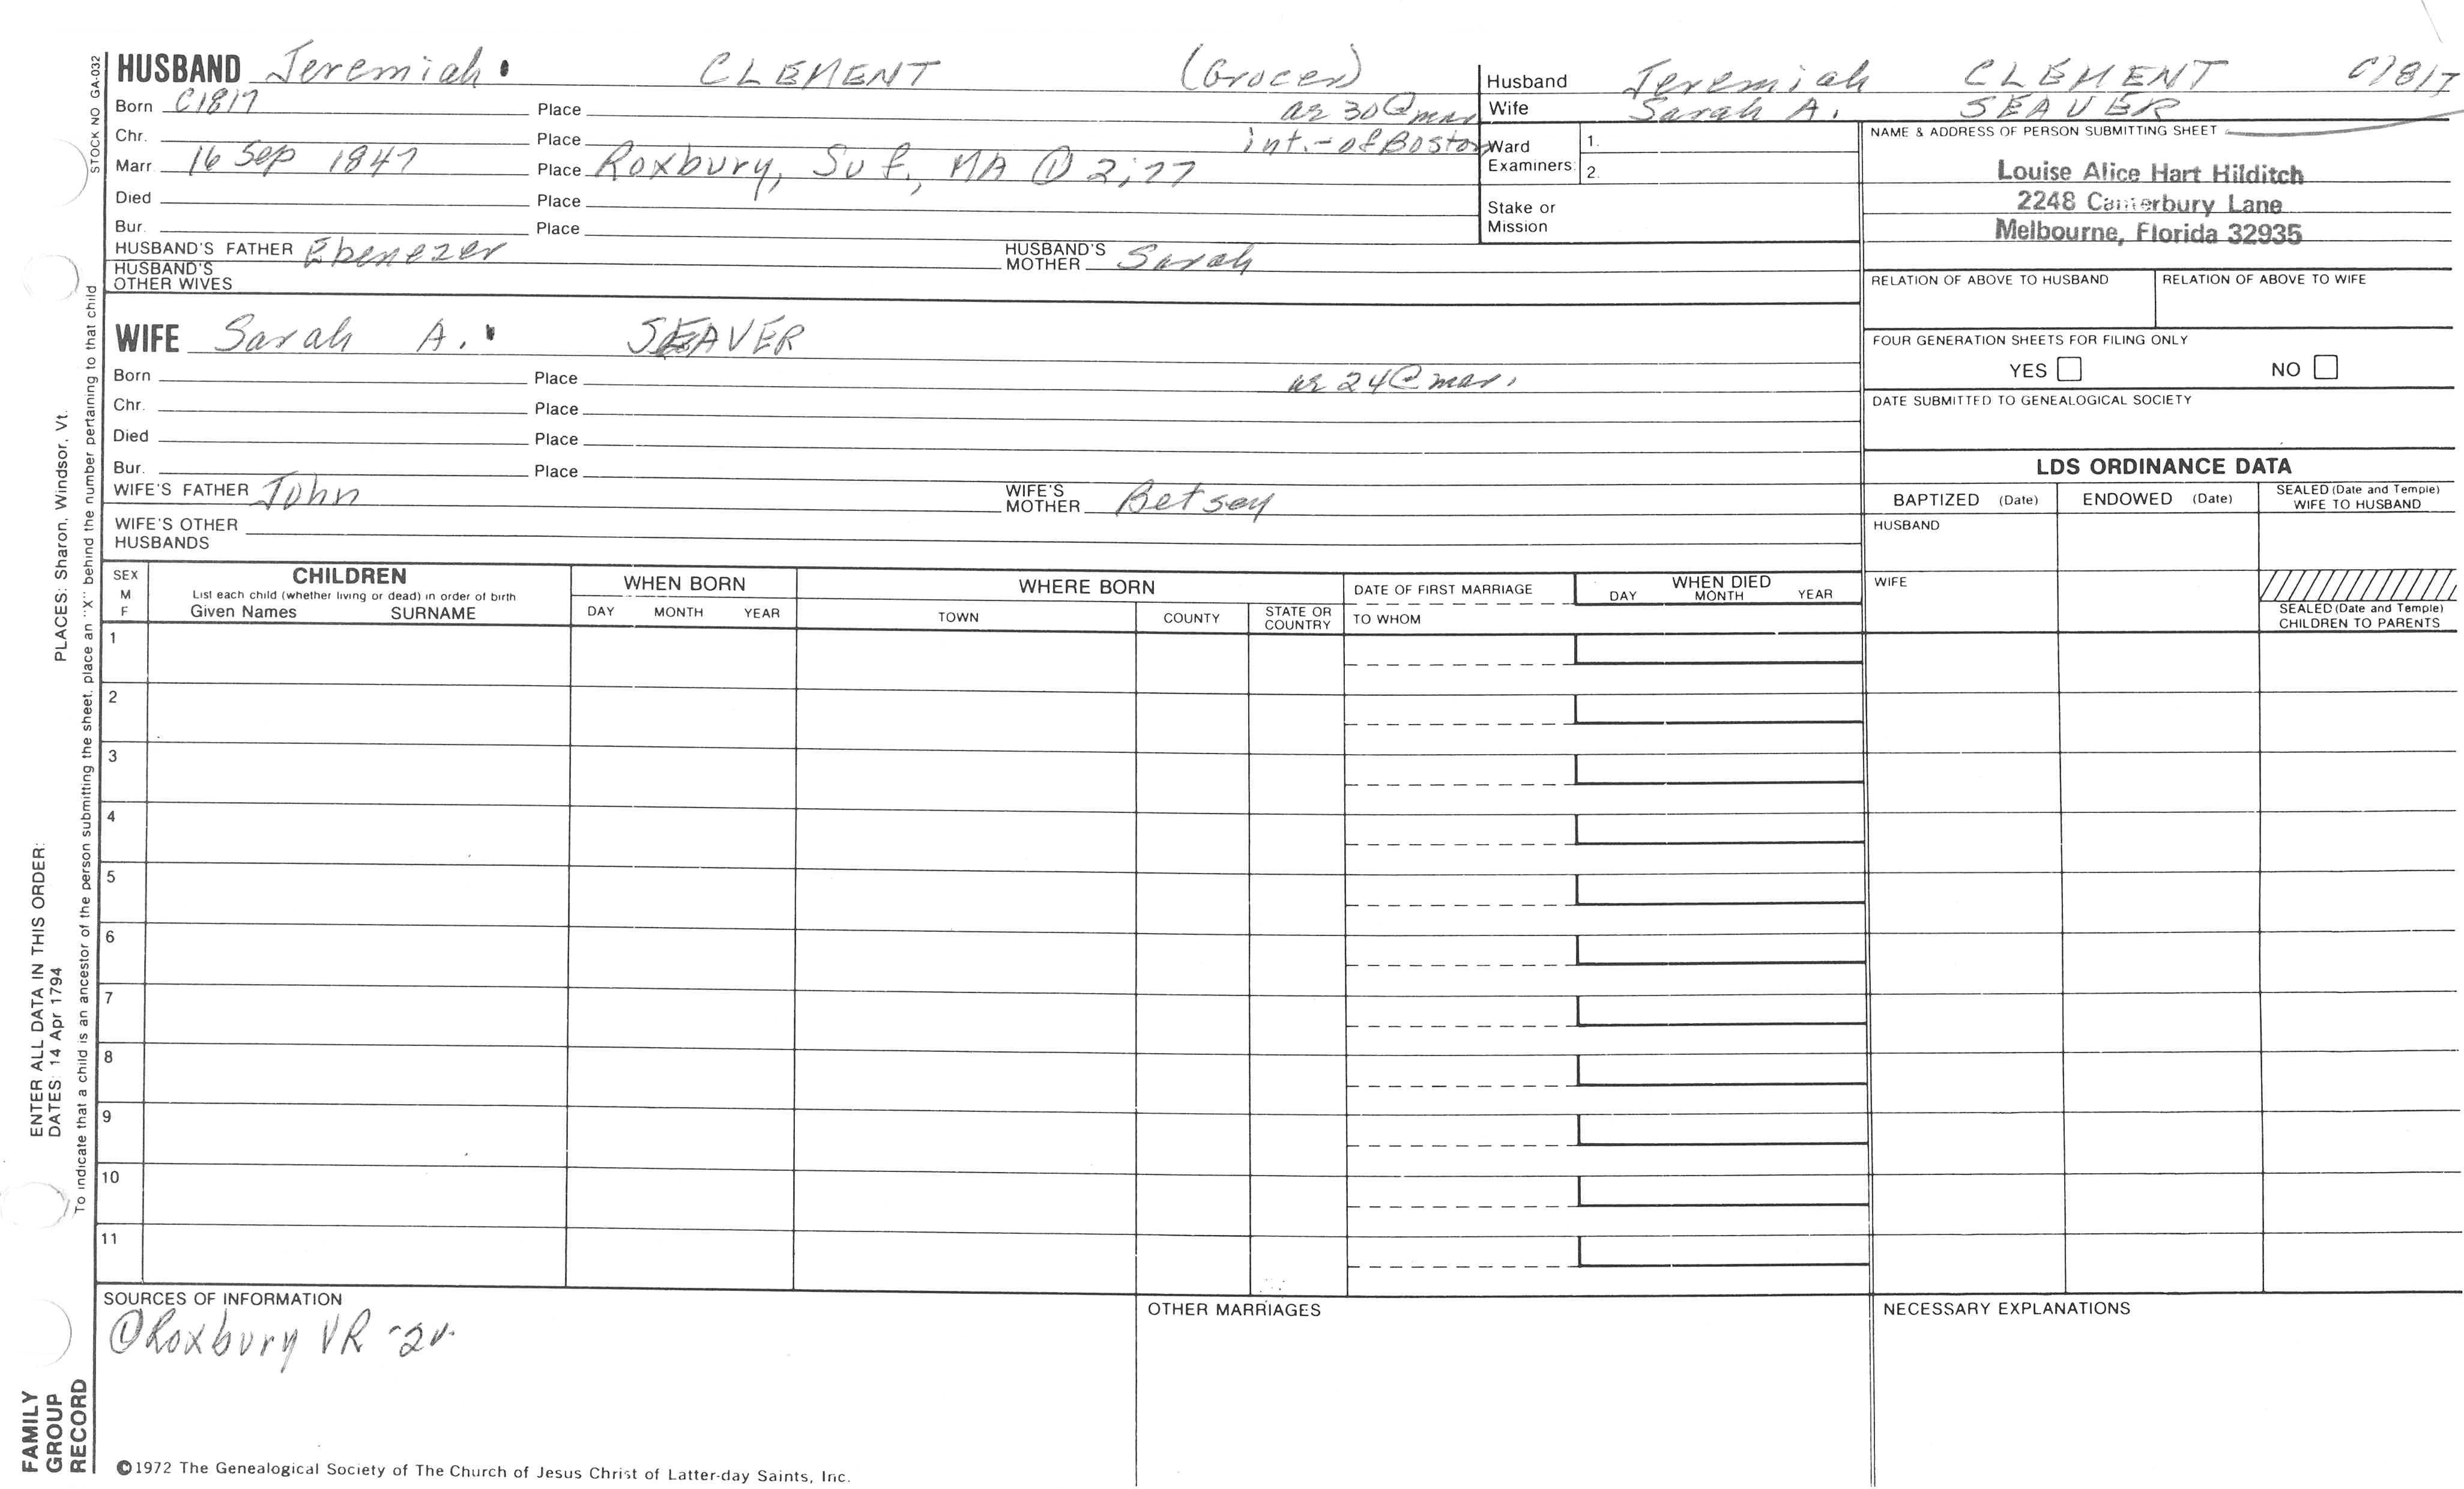 STOCK NO GA-032
HUSBAND Jeremiah CLEMENT (Grocer)
Born C1817 Place ae 30@mar
Chr. Place int.-of Boston
Marr. 16 Sep 1847 Place Roxbury, Suf., MA ① 2;77
Died Place
Bur. Place
HUSBAND'S FATHER Ebenezer HUSBAND'S MOTHER Sarah
HUSBAND'S OTHER WIVES
WIFE Sarah A. SEAVER
Born Place ae 24@mar.
Chr. Place
Died Place
Bur. Place
WIFE'S FATHER John WIFE'S MOTHER Betsey
WIFE'S OTHER HUSBANDS
Husband Jeremiah CLEMENT C1817
Wife Sarah A. SEAVER
Ward Examiners: 1.
2.
Stake or Mission
NAME & ADDRESS OF PERSON SUBMITTING SHEET
Louise Alice Hart Hilditch
2248 Canterbury Lane
Melbourne, Florida 32935
RELATION OF ABOVE TO HUSBAND RELATION OF ABOVE TO WIFE
FOUR GENERATION SHEETS FOR FILING ONLY
YES NO
DATE SUBMITTED TO GENEALOGICAL SOCIETY
LDS ORDINANCE DATA
BAPTIZED (Date) ENDOWED (Date) SEALED (Date and Temple) WIFE TO HUSBAND
HUSBAND
WIFE
SEALED (Date and Temple) CHILDREN TO PARENTS
SEX M F
CHILDREN
List each child (whether living or dead) in order of birth
Given Names SURNAME
WHEN BORN
DAY MONTH YEAR
WHERE BORN
TOWN COUNTY STATE OR COUNTRY
DATE OF FIRST MARRIAGE
TO WHOM
WHEN DIED
DAY MONTH YEAR
1
2
3
4
5
6
7
8
9
10
11
SOURCES OF INFORMATION
① Roxbury VR -2v.
OTHER MARRIAGES
NECESSARY EXPLANATIONS
©1972 The Genealogical Society of The Church of Jesus Christ of Latter-day Saints, Inc.
FAMILY
GROUP
RECORD
ENTER ALL DATA IN THIS ORDER:
DATES: 14 Apr 1794 PLACES: Sharon, Windsor, Vt.
To indicate that a child is an ancestor of the person submitting the sheet, place an "X" behind the number pertaining to that child